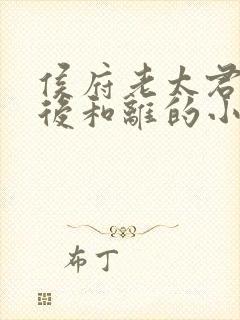 侯府老太君
後和離的小
布丁